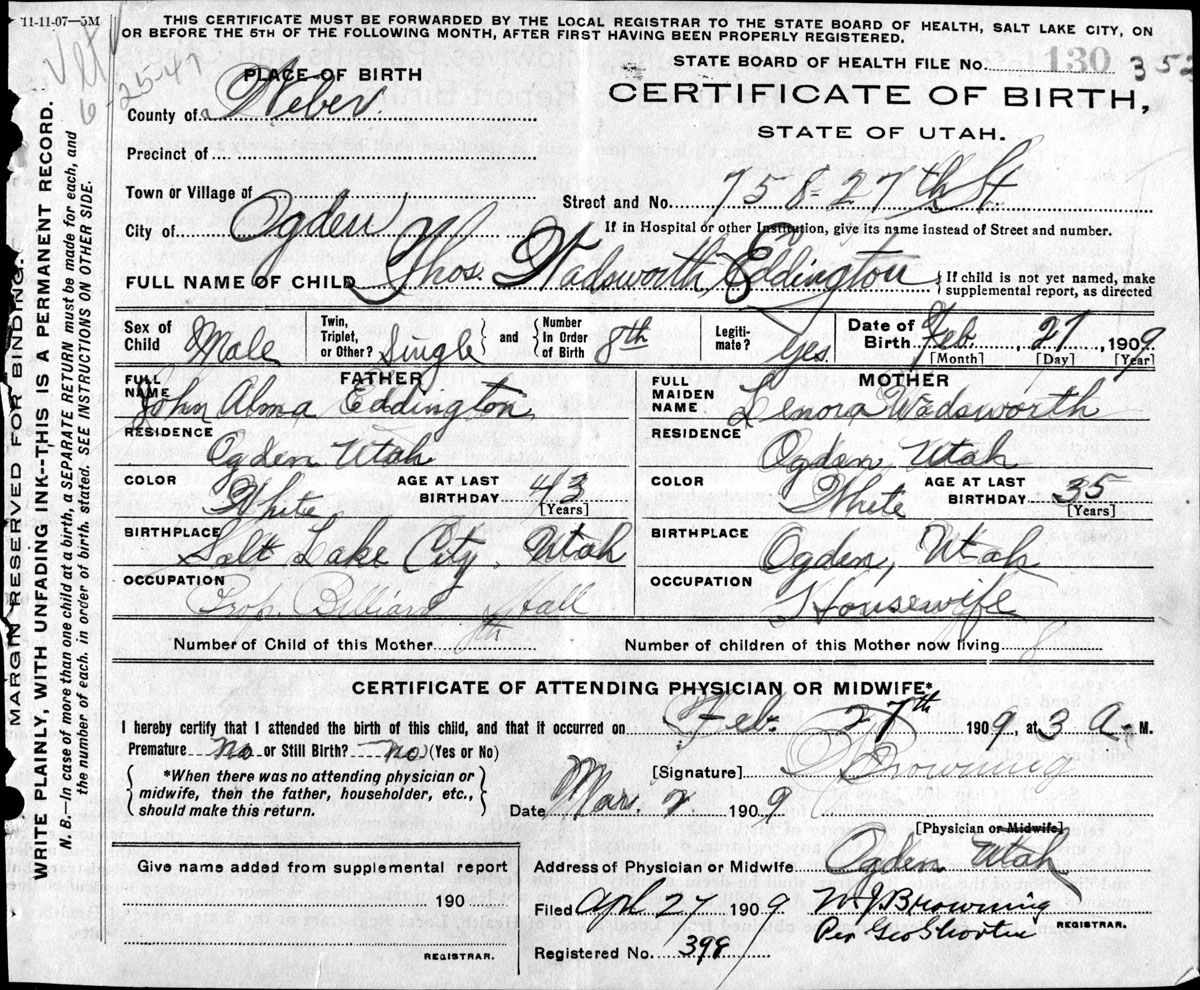 11-11-07—5M
THIS CERTIFICATE MUST BE FORWARDED BY THE LOCAL REGISTRAR TO THE STATE BOARD OF HEALTH, SALT LAKE CITY, ON
OR BEFORE THE 5TH OF THE FOLLOWING MONTH, AFTER FIRST HAVING BEEN PROPERLY REGISTERED.
6-25-47
PLACE OF BIRTH
STATE BOARD OF HEALTH FILE No. 130 352
County of Weber
CERTIFICATE OF BIRTH,
STATE OF UTAH.
Precinct of
Town or Village of
Street and No. 758-27th St
City of Ogden
If in Hospital or other Institution, give its name instead of Street and number.
FULL NAME OF CHILD Thos. Wadsworth Eddington {If child is not yet named, make supplemental report, as directed
Sex of Child Male Twin, Triplet, or Other? Single } and { Number in Order of Birth 8th Legiti-mate? Yes Date of Birth Feb. 27, 1909
[Month] [Day] [Year]
FATHER MOTHER
FULL NAME John Alma Eddington FULL MAIDEN NAME Lenora Wadsworth
RESIDENCE Ogden Utah RESIDENCE Ogden, Utah
COLOR White AGE AT LAST BIRTHDAY 43 [Years] COLOR White AGE AT LAST BIRTHDAY 35 [Years]
BIRTHPLACE Salt Lake City, Utah BIRTHPLACE Ogden, Utah
OCCUPATION Prop. Billiard Hall OCCUPATION Housewife
Number of Child of this Mother 8th Number of children of this Mother now living 8
CERTIFICATE OF ATTENDING PHYSICIAN OR MIDWIFE*
I hereby certify that I attended the birth of this child, and that it occurred on Feb. 27th 1909, at 3 A. M.
Premature no or Still Birth? no (Yes or No)
{*When there was no attending physician or midwife, then the father, householder, etc., should make this return.}
[Signature] Browning
Date Mar. 2 1909
[Physician or Midwife]
Give name added from supplemental report
Address of Physician or Midwife Ogden Utah
190
Filed Apl 27 1909 W J Browning
Per Geo Shorten REGISTRAR.
REGISTRAR.
Registered No. 398
MARGIN RESERVED FOR BINDING.
WRITE PLAINLY, WITH UNFADING INK--THIS IS A PERMANENT RECORD.
N.B.—In case of more than one child at a birth, a SEPARATE RETURN must be made for each, and
the number of each, in order of birth, stated. SEE INSTRUCTIONS ON OTHER SIDE.